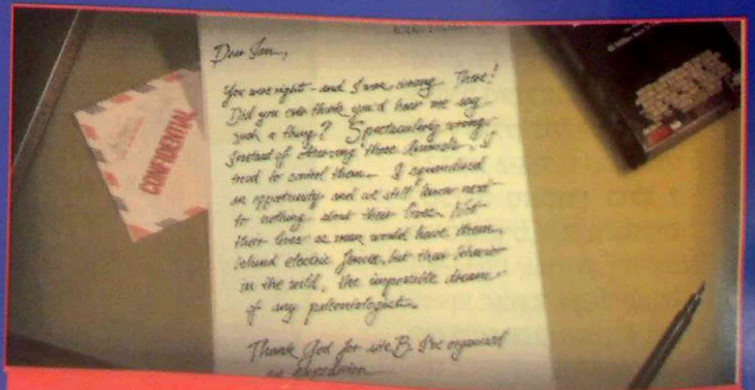 Dear Ian,
You were right - and I was wrong. There!
Did you ever think you'd hear me say
such a thing? Spectacularly wrong.
Instead of observing those animals, I
tried to control them. I squandered
an opportunity and we still know next
to nothing about their lives. Not
their lives as man would have them,
behind electric fences, but their behavior
in the wild, the impossible dream
of any paleontologist.
Thank God for site B. I've organized
an expedition
CONFIDENTIAL